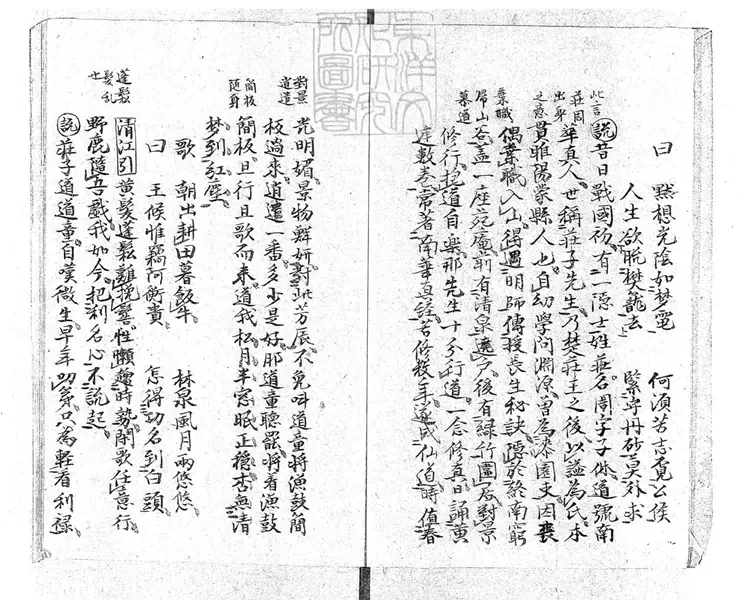 曰 黙想光陰如梦電 何須苦志覓公侯
人生欲脫樊籠去 緊守丹砂莫外求
說昔日戰國初有一隐士姓莊名周字子休道號南
華真人世稱莊子先生乃楚莊王之後以謚為氏本
貫睢陽蒙縣人也自幼學問渊源曽為漆園吏因喪
偶棄職入山得遇明師傳授長生秘訣隱於終南窮
谷盖一座菴前有清泉遶户後有緑竹圍居對景
修行抱道自樂那先生十分行道一念修真日誦黄
庭數卷常著南華真經苦修数年遂成仙道時值春
此言
莊周
出身
之意
棄職
歸山
慕道
光明媚景物鮮妍對此芳辰不免呌道童將漁鼓簡
板過來逍遣一番多少是好那道童聽罷將着漁鼓
簡板且行且歌而来道我松月半窓眠正穩杳無清
梦到紅塵
歌 朝出耕田暮飯牛 林泉風月兩悠悠
曰 王候惟竊阿衡貴 怎得功名到白頭
清江引 黄髪蓬鬆難挽鬏性懶趨時勢閑歌任意行
野鹿隨吾戱我如今把利名心不說起
說莊子道道童自嘆微生早年功名只為輕看利祿
對景
逍遣
簡板
随身
蓬鬆
髪乱
也